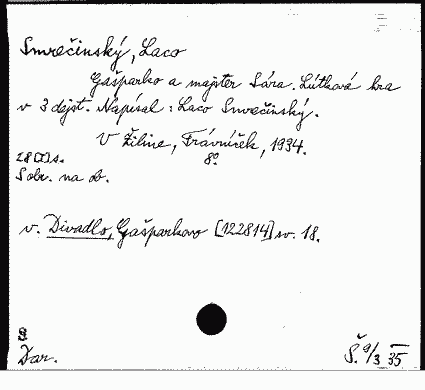 Smrečinský, Laco
Gašparko a majster Sára. Lútková hra
v 3 dejst. Napísal: Laco Smrečinský.
V Žiline, Trávníček, 1934.
28 [2] s. 8°
S obr. na ob.
v. Divadlo, Gašparkovo [122814] sv. 18.
Dar.
Š. 9/3 35